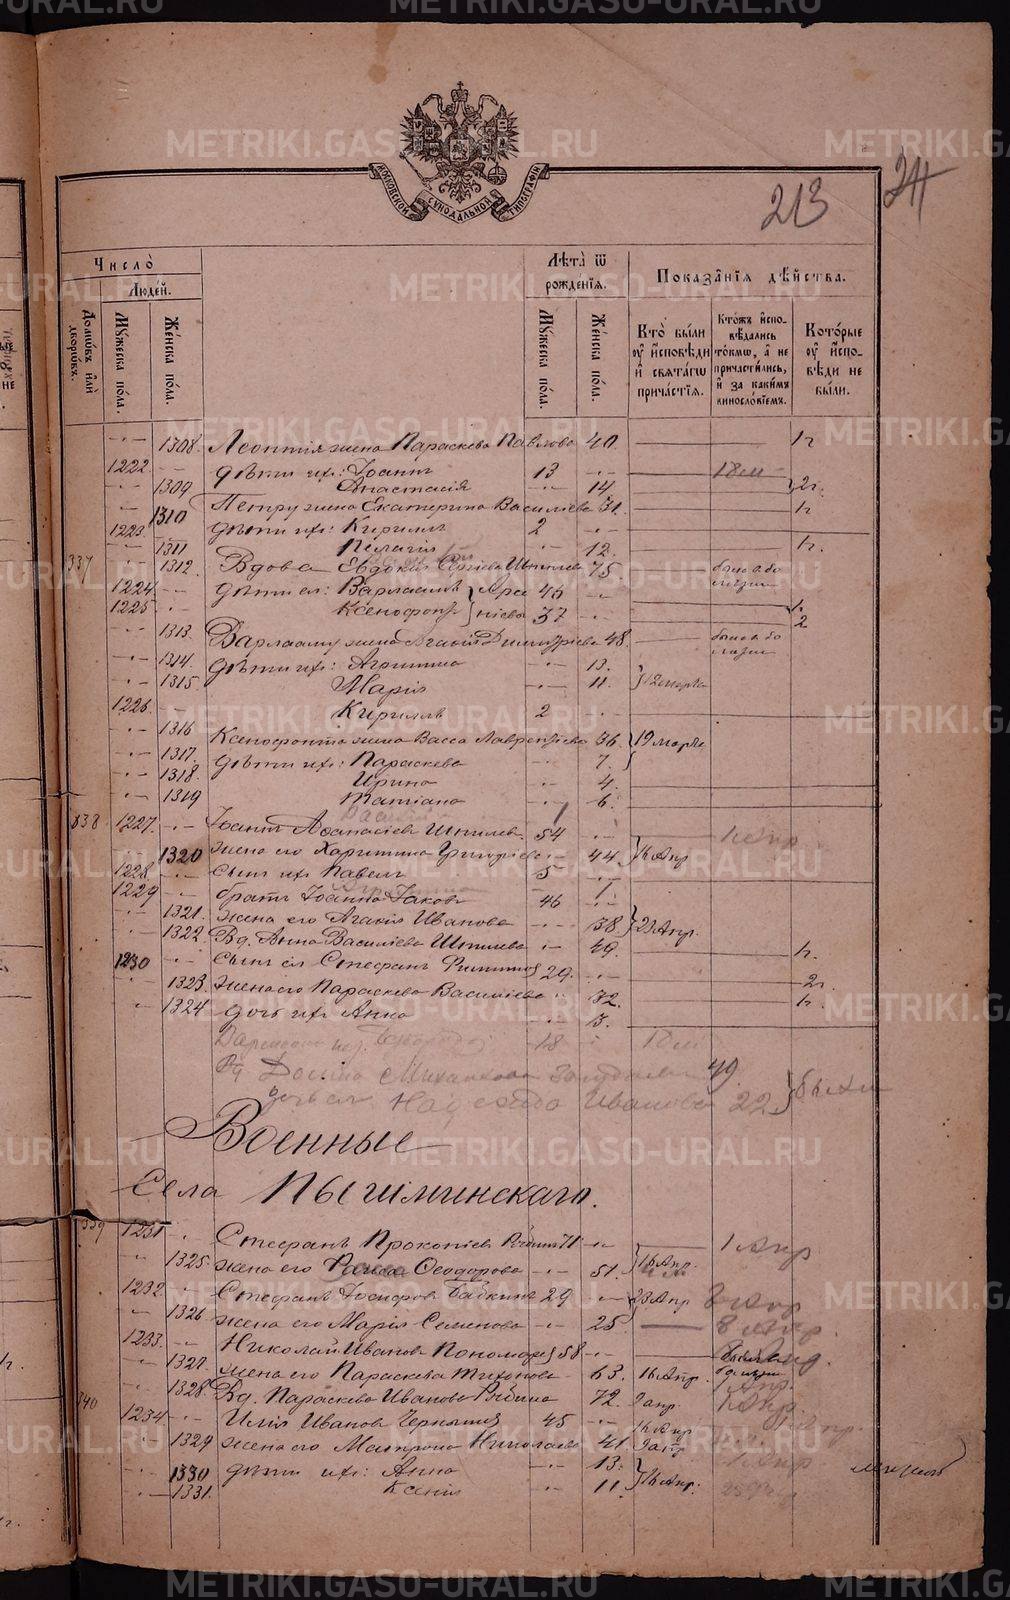 МОСКОВСКОЙ СѴНОДАЛЬНОЙ ТИПОГРАФІИ
213
24
Число̀
Людей.
Домѡвъ или̂ дворѡвъ.
Мꙋжеска пола.
Женска пола.
Лѣта ѿ рожденїѧ.
Мꙋжеска пола.
Женска пола.
Показанїѧ дѣйства.
Кто были ꙋ исповѣди и свѧтагѡ причастїѧ.
Ктожъ исповѣдались токмѡ, а не причастились, и за какимъ винословїемъ.
Которые ꙋ исповѣди не были.
1308. Леонтія жена Параскева Павлова 40 1 г.
1222 дѣти ихъ: Іоаннъ 13 18 м
1309 Анастасія 14 2 г.
1310 Петру жена Екатерина Васильева 31. 1 г.
1223. дѣти ихъ: Кириллъ 2
1311 Пелагія 12. 1 г.
337 1312. Вдова Евдокія Шипилева 75
1224 дѣти ея: Варлаамъ 45
1225 Ксенофонтъ 37 2
1313. Варлааму жена Агафія Димитріева 48.
1314. дѣти ихъ: Агриппина 13.
1315 Марія 11. 12 марта
1226. Кириллъ 2
1316 Ксенофонта жена Васса Лаврентіева 36 19 марта
1317. дѣти ихъ: Параскева 7.
1318. Ирина 4.
1319 Татіана 6.
338 1227. Іоаннъ Аѳанасіевъ Шипилевъ. 54
1320 жена его Харитина Григоріева 44. 16 Апр
1228. сынъ ихъ Павелъ 5
1229 братъ Іоанна Іаковъ 46
1321. жена его Агафія Иванова 38. 23 Апр.
1322. Вд. Анна Васильева Шипилева 49. 1 г.
1230 сынъ ея Стефанъ Филиппов 29. 2 г.
1323. жена его Параскева Васильева 32. 1 г.
1324 дочь ихъ Анна 3.
18
Вд Михайлова 49.
дочь ея Надежда Иванова 22 были
Военные
Села Пышминскаго.
339 1231 Стефанъ Прокопіевъ 71 1 Апр
1325. жена его Раиса Ѳеодорова 51. 16 Апр.
1232 Стефанъ Іосифовъ Бабкинъ 29 23 Апр
1326 жена его Марія Семенова 25. 8 Апр.
1233. Николай Ивановъ Пономарев 58
1327. жена его Параскева Тихонова 63. 16 Апр.
1328. Вд. Параскева Иванова 72. 9 апр.
340 1234 Илія Ивановъ 45 16 Апр
1329 жена его Матрона Николаева 41. 9 апр
1330 дѣти ихъ: Анна 13.
1331. Ксенія 11. 16 Апр.
METRIKI.GASO-URAL.RU